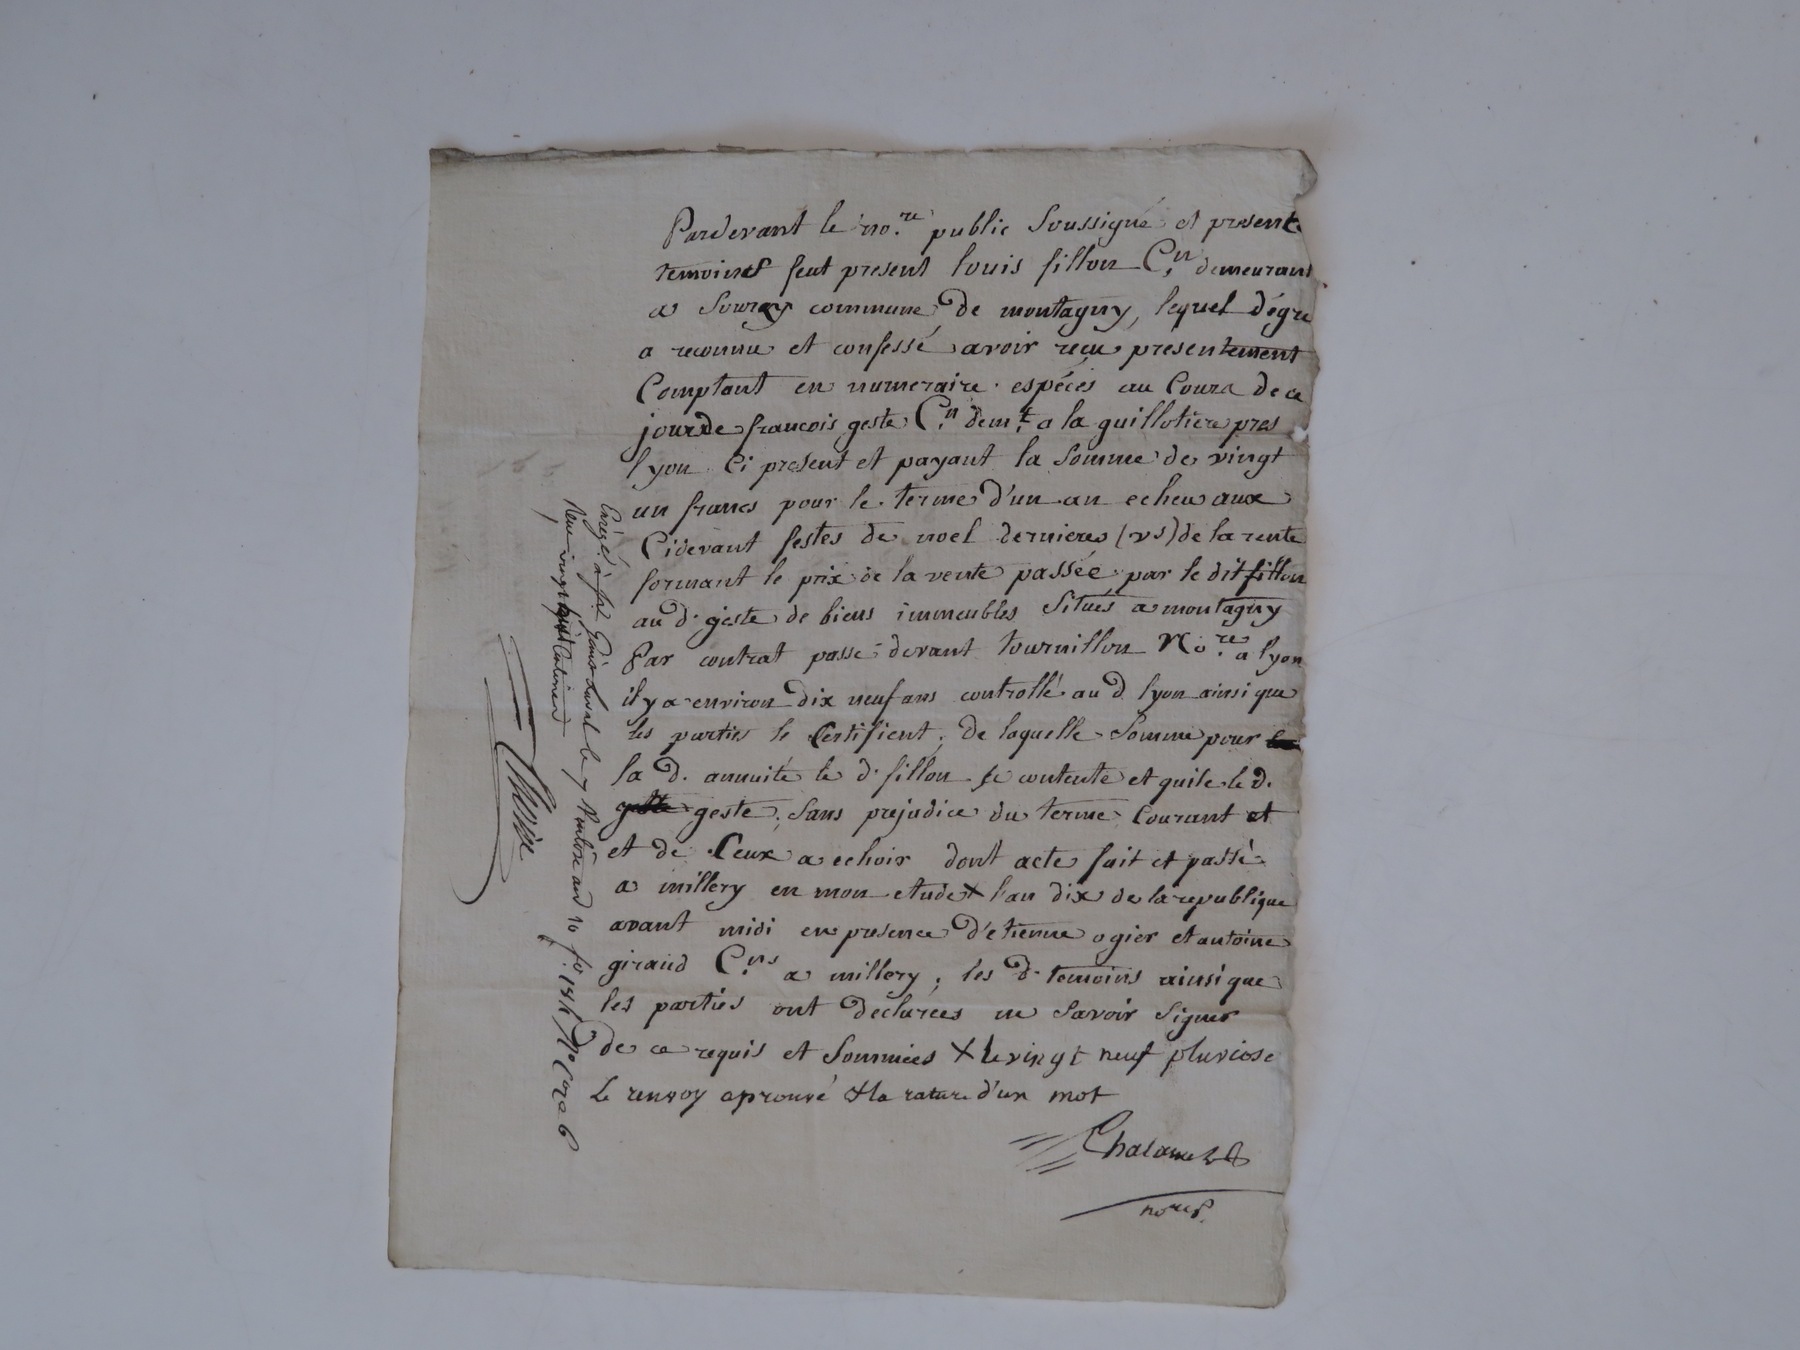 Pardevant le no.re public Soussigné et presents
temoins feut present louis fillon C.n demeurant
a Sourzy commune de montagny, lequel dégré
a reconnu et confessé avoir reçu presentement
Comptant en numeraire espéces au Cours de ce
jour de francois geste C.n dem.t a la guillotiere pres
lyon Ci present et payant la Somme de vingt
un francs pour le terme d'un an echeu aux
Cidevant festes de noel dernieres (vs) de la rente
formant le prix de la vente passée par le dit fillon
au d. geste de biens immeubles Situés a montagny
Par contrat passé devant tournillon No.re a lyon
il y a environ dix neuf ans controllé au d lyon ainsi que
les parties le Certifient, de laquelle Somme pour
la d. annuité le d. fillon se contente et quite le d.
geste, Sans prejudice du terme Courant et
et de Ceux a echoir dont acte fait et passé
a millery en mon etude X l'an dix de la republique
avant midi en presence d'etienne ogier et antoine
giraud C.ns a millery, les d. temoins ainsi que
les parties ont declarées ne Savoir Signer
de ce requis et Sommées X le vingt neuf pluviose
Le renvoy aprouvé & la rature d'un mot
no.re p.
Enregé. à St Genis Laval le 7 Ventôse an 10 fo. 151 Vo Case 6
Reçu vingt centimes